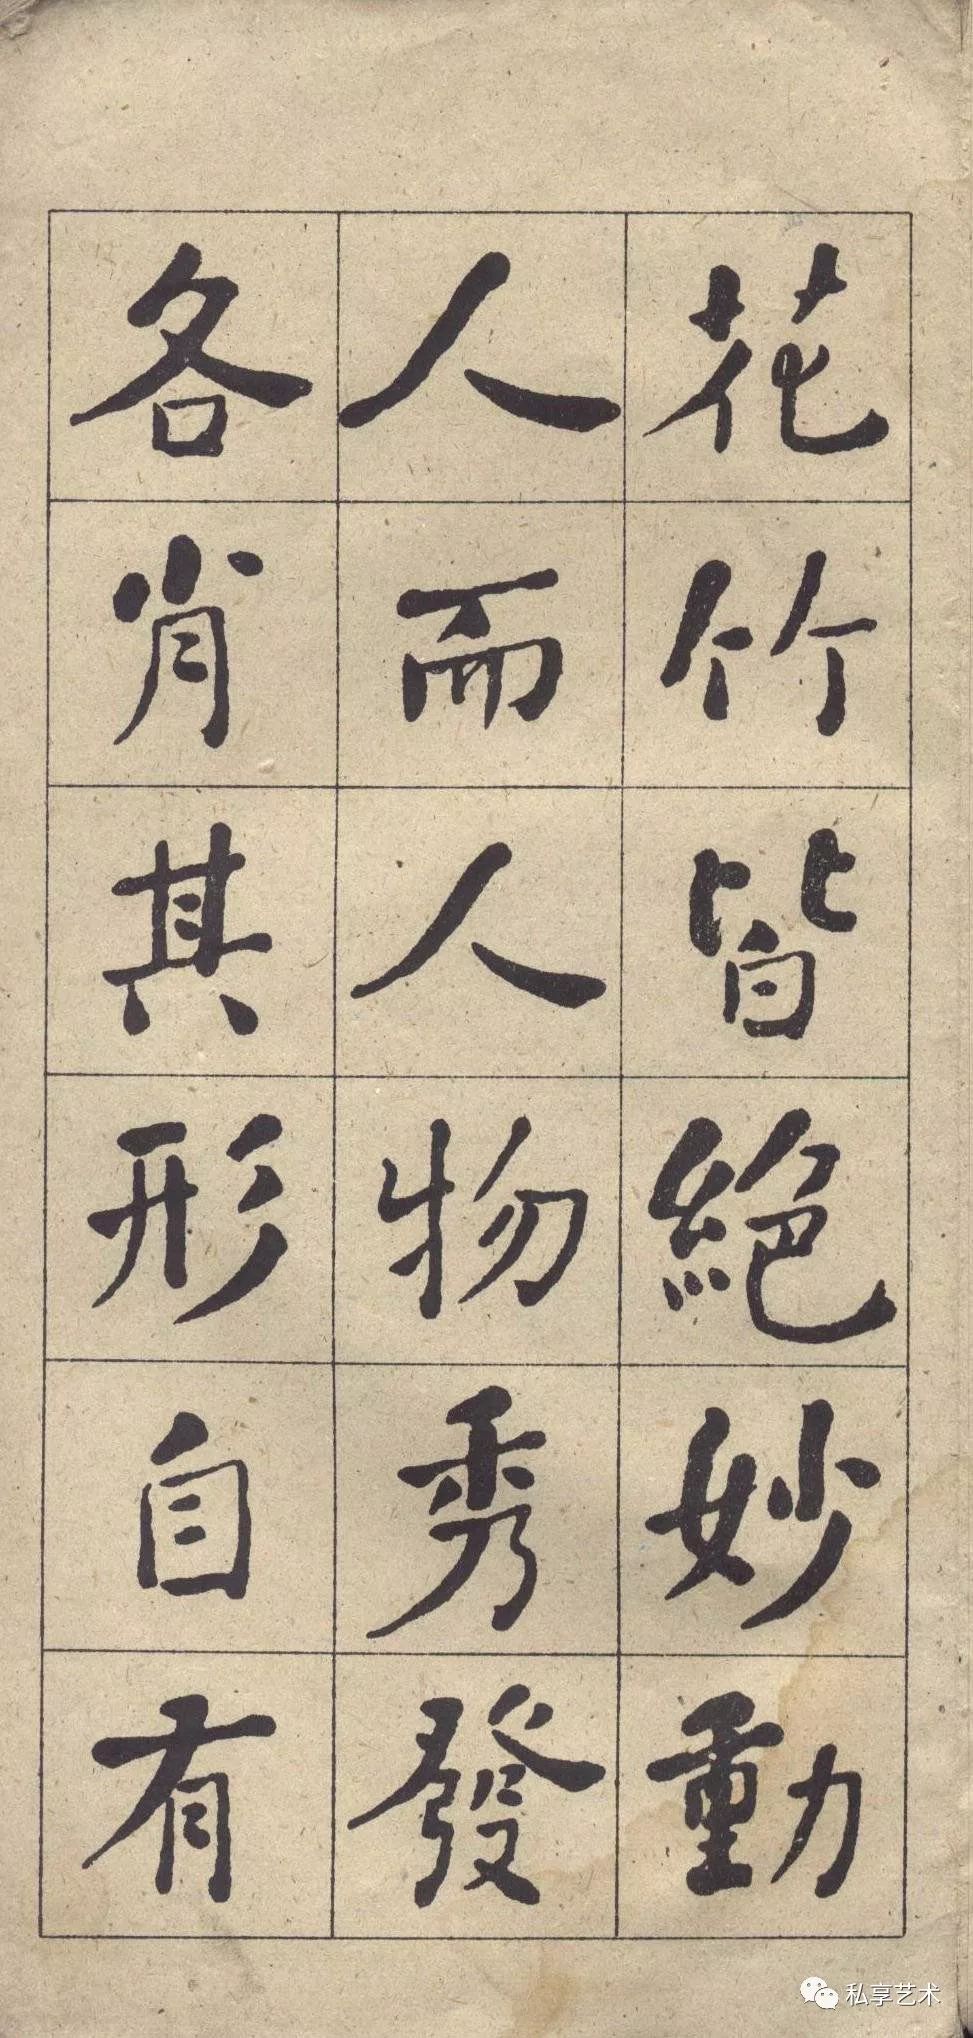 花竹皆絕妙動
人而人物秀發
各肖其形自有
私享艺术